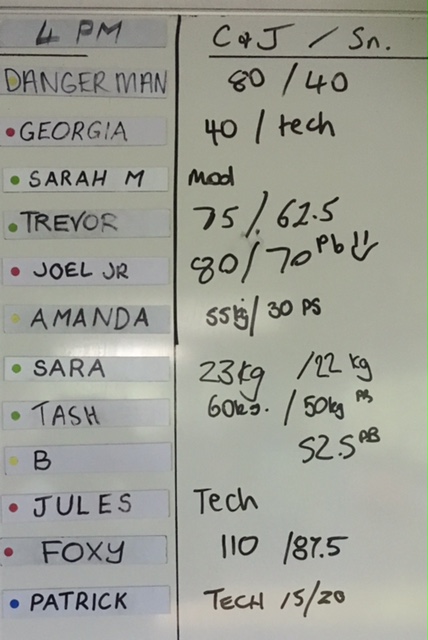 4 PM C & J / Sn.
DANGERMAN 80 / 40
GEORGIA 40 / tech
SARAH M Mod
TREVOR 75 / 62.5
JOEL JR 80 / 70 Pb
AMANDA 55kg / 30 PS
SARA 23kg / 22 kg
TASH 60kg. / 50kg PB
52.5 PB
B
JULES Tech
FOXY 110 / 87.5
PATRICK TECH 15/20